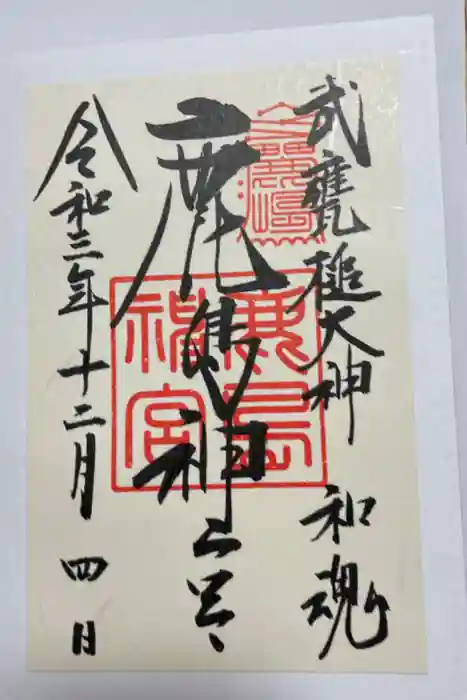 武甕槌大神 和魂
鹿島神宮
令和三年十二月四日
鹿島神宮